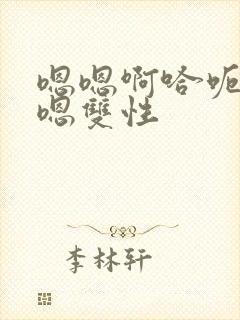 嗯嗯啊哈呃
嗯雙性
李林轩